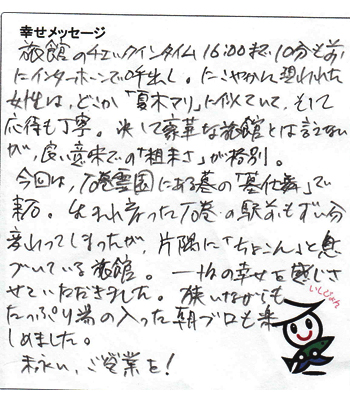 幸せメッセージ
旅館のチェックインタイム16:00まで10分も前
にインターホーンで呼出し。にこやかに現われた
女性は、どこか「夏木マリ」に似ていて、そして
応待も丁寧。決して豪華な旅館とは言えない
が、良い意味での「粗末さ」が格別。
今回は、石巻霊園にある墓の「墓仕舞」で
来石。生まれ育った石巻の駅前もずい分
変わってしまったが、片隅に「ちょこん」と息
づいている旅館。一抹の幸せを感じさ
せていただきました。狭いながらも
たっぷり湯の入った朝ブロも楽
しめました。
末永い、ご営業を!
いしぴょん